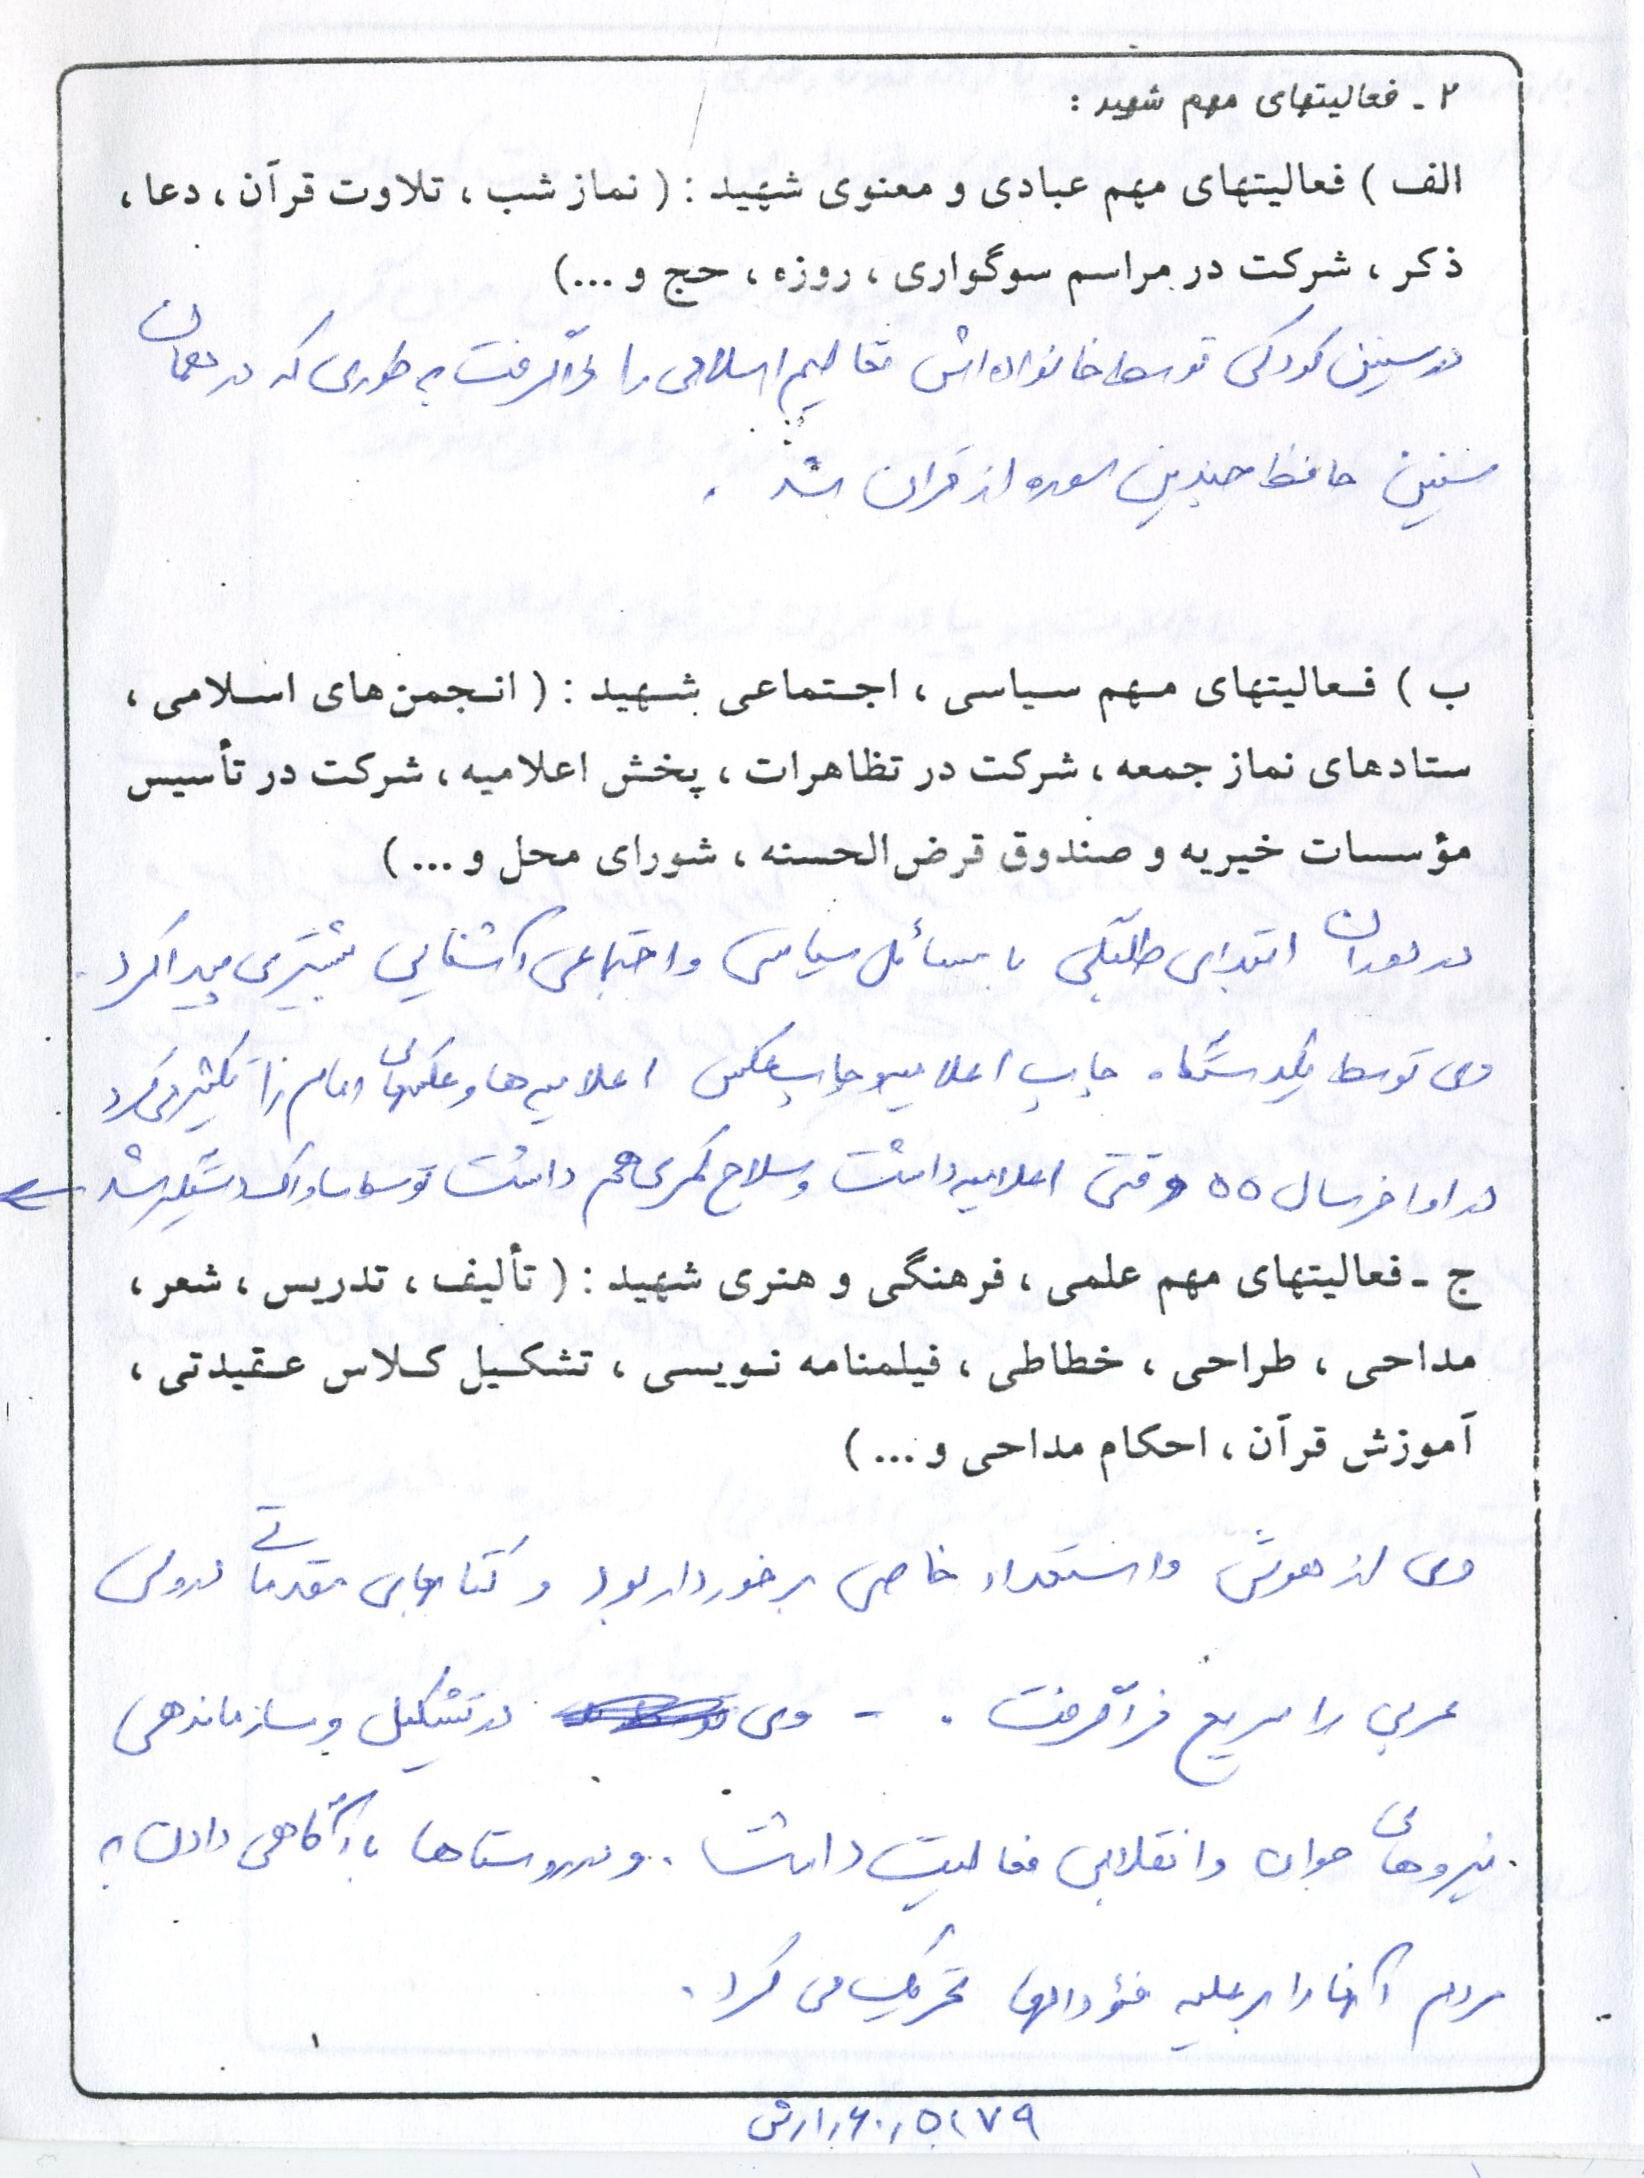 ۲ ـ فعالیتهای مهم شهید :
الف ) فعالیتهای مهم عبادی و معنوی شهید : ( نماز شب ، تلاوت قرآن ، دعا ،
ذکر ، شرکت در مراسم سوگواری ، روزه ، حج و ...)
در سنین کودکی توسط خانواده اش تعالیم اسلامی را فراگرفت به طوری که در همان
سنین حافظ چندین سوره از قران شد .
ب ) فعالیتهای مهم سیاسی ، اجتماعی شهید : ( انجمن‌های اسلامی ،
ستادهای نماز جمعه ، شرکت در تظاهرات ، پخش اعلامیه ، شرکت در تأسیس
مؤسسات خیریه و صندوق قرض‌الحسنه ، شورای محل و ... )
در دوران ابتدای طلبگی با مسائل سیاسی و اجتماعی آشنایی بیشتری پیدا کرد .
وی توسط یکدستگاه چاپ اعلامیه و چاپ عکس اعلامیه ها و عکسهای امام را تکثیر می کرد
در اواخر سال ۵۵ وقتی اعلامیه داشت و سلاح کمری هم داشت توسط ساواک دستگیر شد
ج ـ فعالیتهای مهم علمی ، فرهنگی و هنری شهید : ( تألیف ، تدریس ، شعر ،
مداحی ، طراحی ، خطاطی ، فیلمنامه نویسی ، تشکیل کلاس عقیدتی ،
آموزش قرآن ، احکام مداحی و ... )
وی از هوش و استعداد خاصی برخوردار بود و کتابهای مقدماتی دروس
عربی را سریع فراگرفت . - وی در تشکیل و سازماندهی
نیروهای جوان و انقلابی فعالیت داشت . و در روستاها با آگاهی دادن به
مردم آنها را بر علیه فئودالها تحریک می کرد .
۵۱۷۹